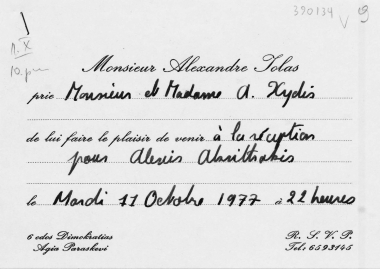 390134
9
1. X
10. pm
Monsieur Alexandre Iolas
prie Monsieur et Madame A. Xydis
de lui faire le plaisir de venir à la réception
pour Alexis Akrithakis
le Mardi 11 Octobre 1977 à 22 heures
6 odos Dimokratias R. S. V. P.
Agia Paraskevi Tel: 6593145